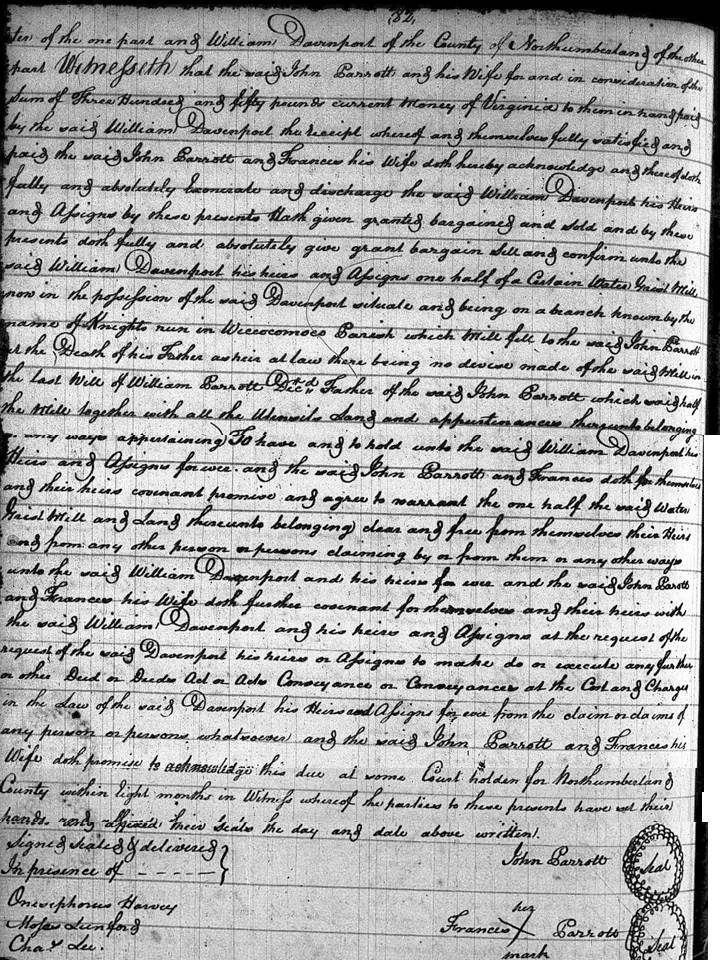 82
ter of the one part and William Davenport of the County of Northumberland of the other
part Witnesseth that the said John Parrott and his Wife for and in consideration of the
Sum of Three Hundred and fifty pounds current Money of Virginia to them in hand paid
by the said William Davenport the receipt whereof and themselves fully satisfied and
paid the said John Parrott and Frances his Wife doth hereby acknowledge and thereof doth
fully and absolutely Exonerate and discharge the said William Davenport his Heirs
and Assigns by these presents Hath given granted bargained and sold and by these
presents doth fully and absolutely give grant bargain Sell and confirm unto the
said William Davenport his heirs and Assigns one half of a Certain Water Grist Mill
now in the possession of the said Davenport situate and being on a branch known by the
name of Knights run in Wiccocomoco Parish which Mill fell to the said John Parrott
at the Death of his Father as heir at law there being no devise made of the said Mill in
the last Will of William Parrott Decd. Father of the said John Parrott which said half
the Mill together with all the Utensils Land and appurtenances thereunto belonging
or any ways appertaining To have and to hold unto the said William Davenport his
Heirs and Assigns for ever. and the said John Parrott and Frances doth for themselves
and their heirs covenant promise and agree to warrant the one half the said Water
Grist Mill and Land thereunto belonging clear and free from themselves their Heirs
and from any other person or persons claiming by or from them or any other ways
unto the said William Davenport and his heirs for ever and the said John Parott
and Frances his Wife doth further covenant for themselves and their heirs with
the said William Davenport and his heirs and Assigns at the request of the
request of the said Davenport his heirs or Assigns to make do or execute any further
or other Deed or Deeds Act or Acts Conveyance or Conveyances at the Cost and Charges
in the Law of the said Davenport his Heirs and Assigns for ever from the claim or claims of
any person or persons whatsoever and the said John Parrott and Frances his
Wife doth promise to acknowledge this due at some Court holden for Northumberland
County within Eight months in Witness whereof the parties to these presents have set their
hands and affixed their Seals the day and date above written.
Signed Sealed & delivered
In presence of - - - - - -
John Parrott Seal
Onesephorus Harvey
Moses Lunford
Chas. Lee.
her
Frances X Parrott Seal
mark